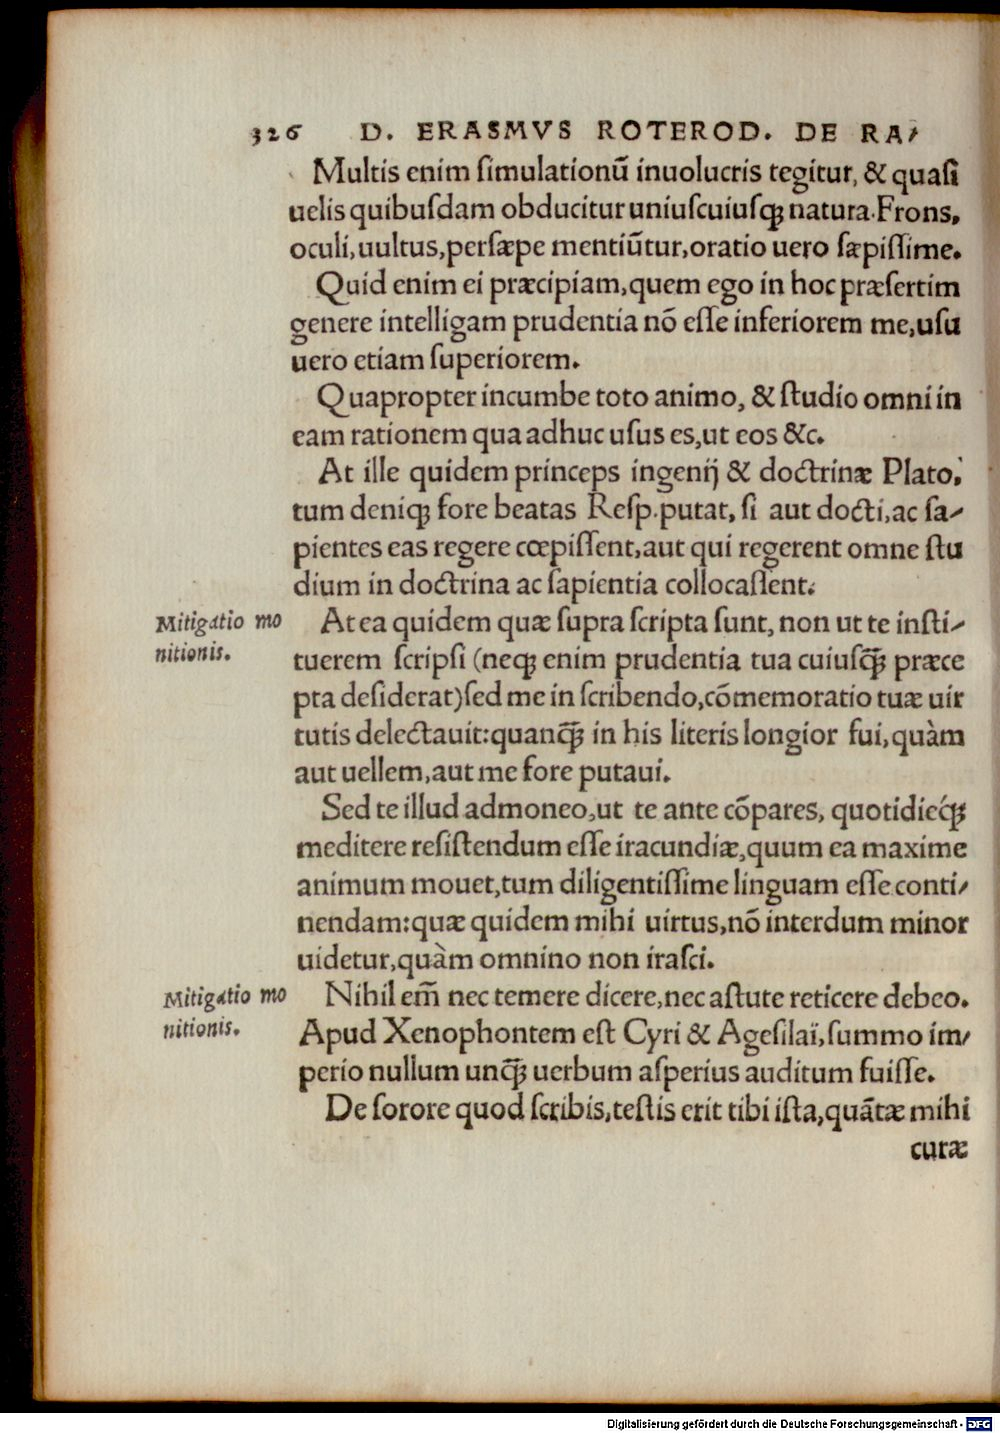 326 D. ERASMVS ROTEROD. DE RA/
Multis enim ſimulationū inuolucris tegitur, & quaſi
uelis quibuſdam obducitur uniuſcuiuſq; natura. Frons,
oculi, uultus, perſæpe mentiūtur, oratio uero ſæpiſſime.
Quid enim ei præcipiam, quem ego in hoc præſertim
genere intelligam prudentia nō eſſe inferiorem me, uſu
uero etiam ſuperiorem.
Quapropter incumbe toto animo, & ſtudio omni in
eam rationem qua adhuc uſus es, ut eos &c.
At ille quidem princeps ingenij & doctrinæ Plato,
tum deniq; fore beatas Reſp. putat, ſi aut docti, ac ſa/
pientes eas regere cœpiſſent, aut qui regerent omne ſtu
dium in doctrina ac ſapientia collocaſſent.
Mitigatio mo
nitionis.
At ea quidem quæ ſupra ſcripta ſunt, non ut te inſti/
tuerem ſcripſi (neq; enim prudentia tua cuiuſq̃; præce
pta deſiderat) ſed me in ſcribendo, cōmemoratio tuæ uir
tutis delectauit: quanq̃; in his literis longior fui, quàm
aut uellem, aut me fore putaui.
Sed te illud admoneo, ut te ante cōpares, quotidieq́;
meditere reſiſtendum eſſe iracundiæ, quum ea maxime
animum mouet, tum diligentiſſime linguam eſſe conti/
nendam: quæ quidem mihi uirtus, nō interdum minor
uidetur, quàm omnino non iraſci.
Mitigatio mo
nitionis.
Nihil em̄ nec temere dicere, nec aſtute reticere debeo.
Apud Xenophontem eſt Cyri & Ageſilaï, ſummo im/
perio nullum unq̃; uerbum aſperius auditum fuiſſe.
De ſorore quod ſcribis, teſtis erit tibi iſta, quātæ mihi
curæ
Digitalisierung gefördert durch die Deutsche Forschungsgemeinschaft - DFG